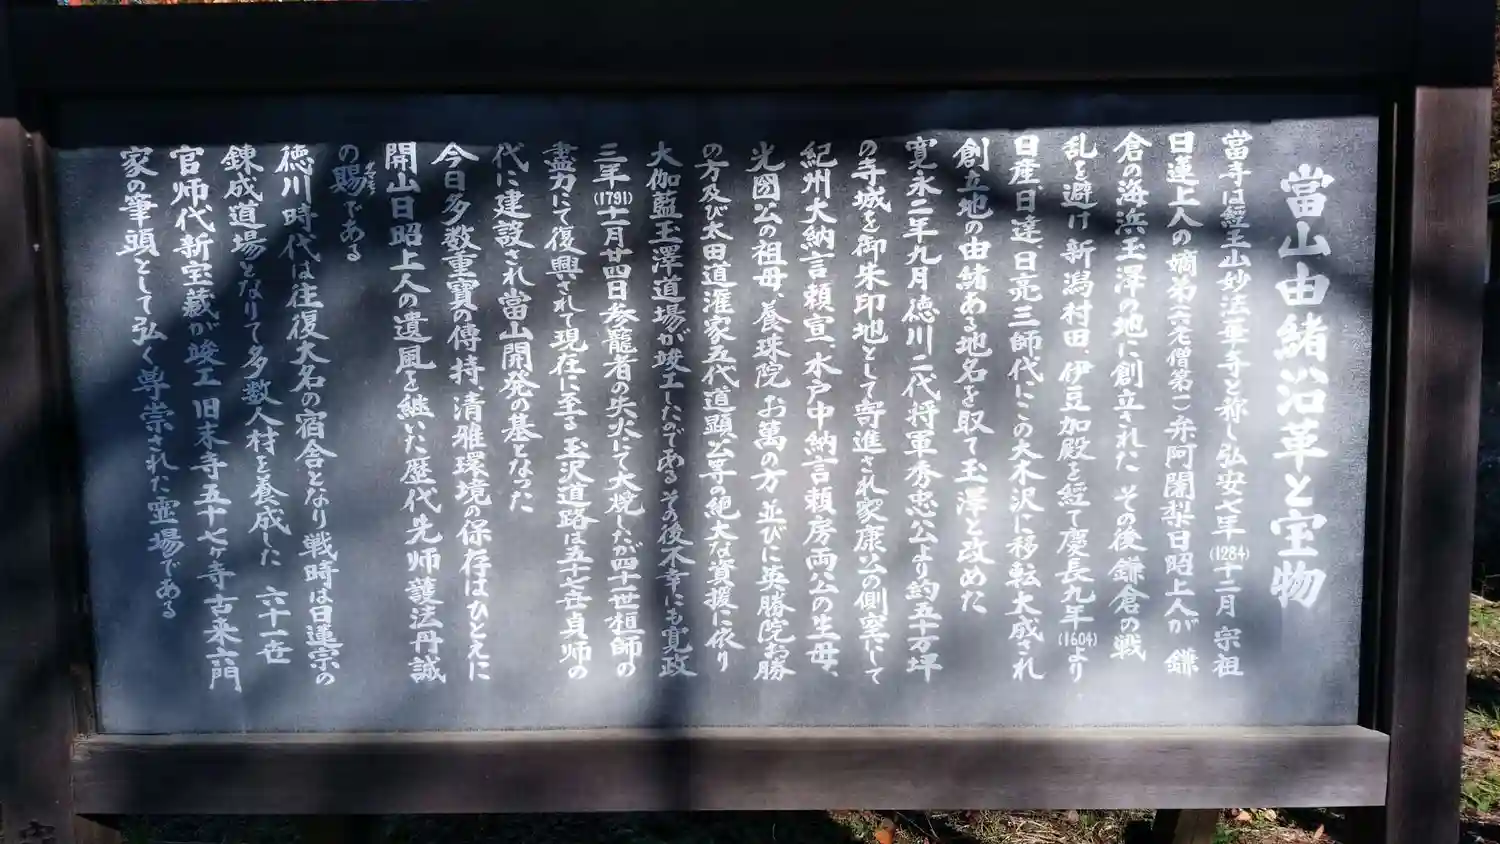 當山由緒沿革と宝物
當寺は經王山妙法華寺と称し弘安七年(1284)十二月 宗祖
日蓮上人の嫡弟(六老僧第一)弁阿闍梨日昭上人が 鎌
倉の海浜玉澤の地に創立された その後鎌倉の戦
乱を避け新潟村田、伊豆加殿を経て慶長九年(1604)より
日産、日達、日亮三師代にこの大木沢に移転大成され
創立地の由緒ある地名を取て玉澤と改めた
寛永二年九月徳川二代将軍秀忠公より約五十万坪
の寺城を御朱印地として寄進され家康公の側室にして
紀州大納言頼宣、水戸中納言頼房両公の生母、
光圀公の祖母、養珠院お萬の方 並びに英勝院お勝
の方及び太田道灌家五代道顕公等の絶大な資援に依り
大伽藍玉澤道場が竣工したのである その後不幸にも寛政
三年(1791)十一月廿四日参籠者の失火にて大焼したが四十一世桓師の
盡力にて復興されて現在に至る 玉沢道路は五十七世貞师の
代に建設され當山開発の基となった
今日多数重寶の傳持、清雅環境の保存はひとえに
開山日昭上人の遺風を継いだ歴代先师護法丹誠
の賜である
徳川時代は往復大名の宿舎となり戦時は日蓮宗の
錬成道場となりて多数人材を養成した 六十一世
官师代新宝蔵が竣工 旧末寺五十七ヶ寺古来六門
家の筆頭として弘く尊崇された霊場である